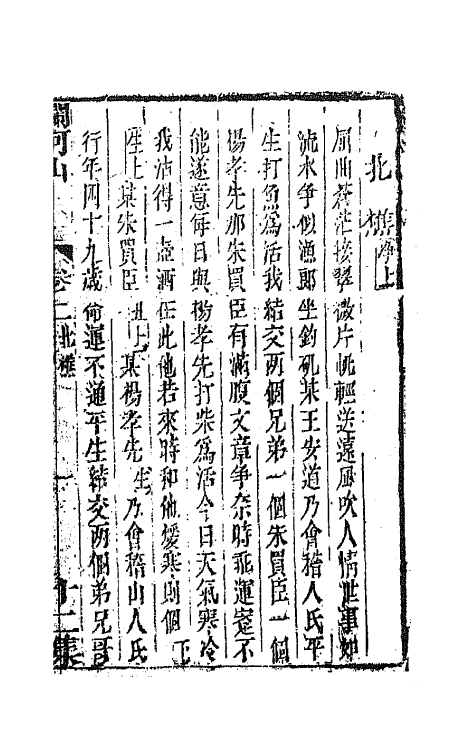 北樵 淨上
層曲蒼茫接翠微片帆輕送遠風吹人情世事如
流水爭似漁郎坐釣磯某王安道乃會稽人氏平
生打魚爲活我結交两個兄弟一個朱買臣一個
楊孝先那朱買臣有滿腹文章爭奈時乖運蹇不
能遂意每日與楊孝先打柴爲活今日天氣寒冷
我沽得一壺酒在此他若來時和他煖寒則個 下
生上 某朱買臣 丑上 某楊孝先 生 乃會稽山人氏
行年四十九歲命運不通平生結交两個弟兄哥
卷二 北樵 一 集